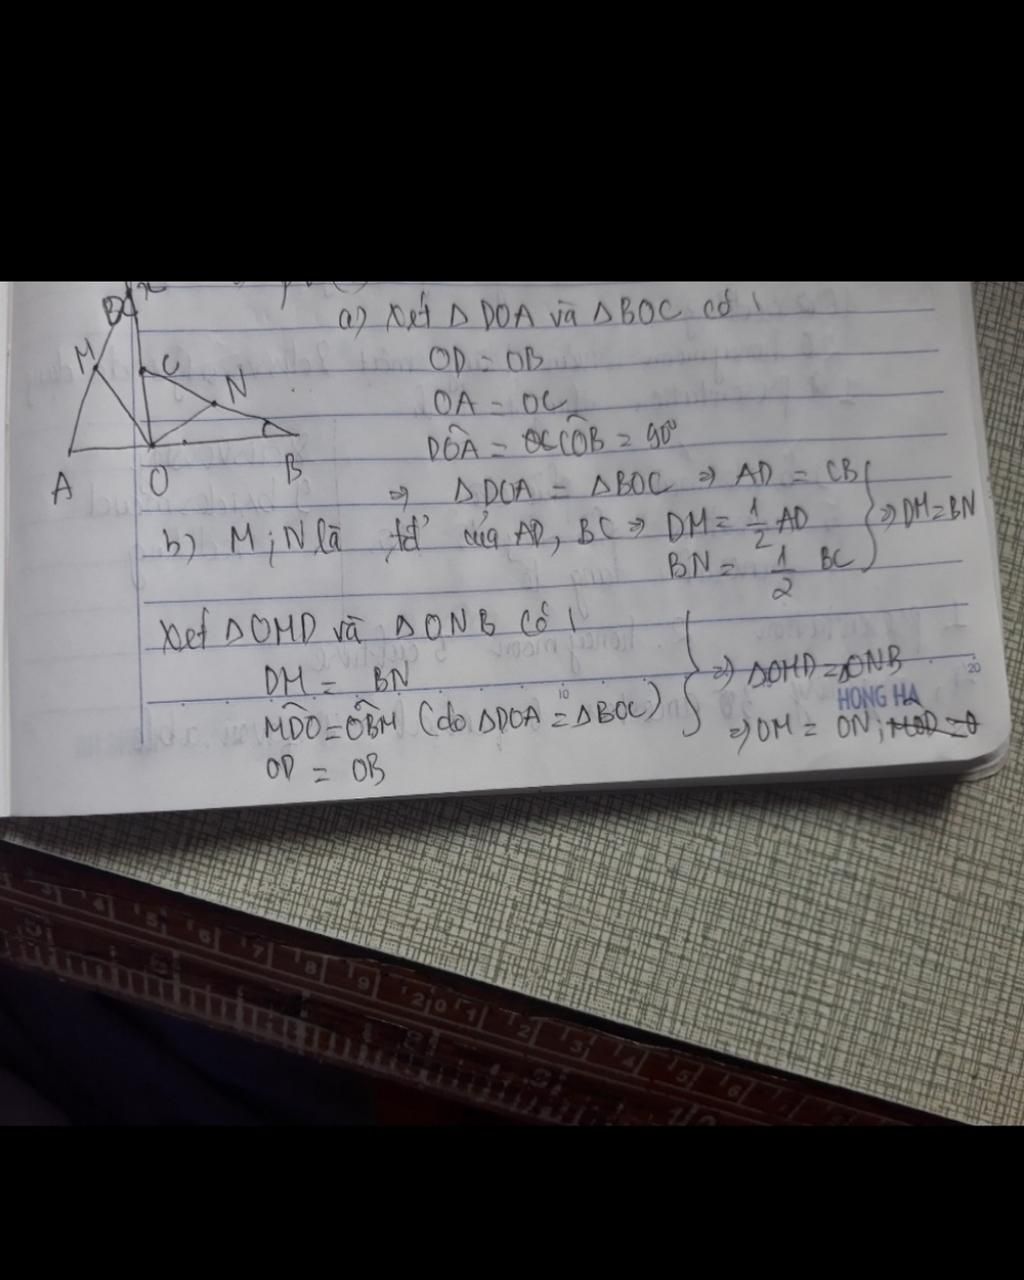 D
M
C
N
A
O
B
a) Xét Δ DOA và Δ BOC có !
OD = OB
OA = OC
DÔA = CÔB = 90°
=> Δ DOA = Δ BOC => AD = CB
b) M; N là của AD, BC => DM = 1/2 AD
BN = 1/2 BC
=> DM = BN
Xét Δ OMD và Δ ONB có !
DM = BN
MD̂O = OB̂M (do Δ DOA = Δ BOC)
OD = OB
=> Δ OMD = Δ ONB
HONG HA
=> OM = ON;
10
20